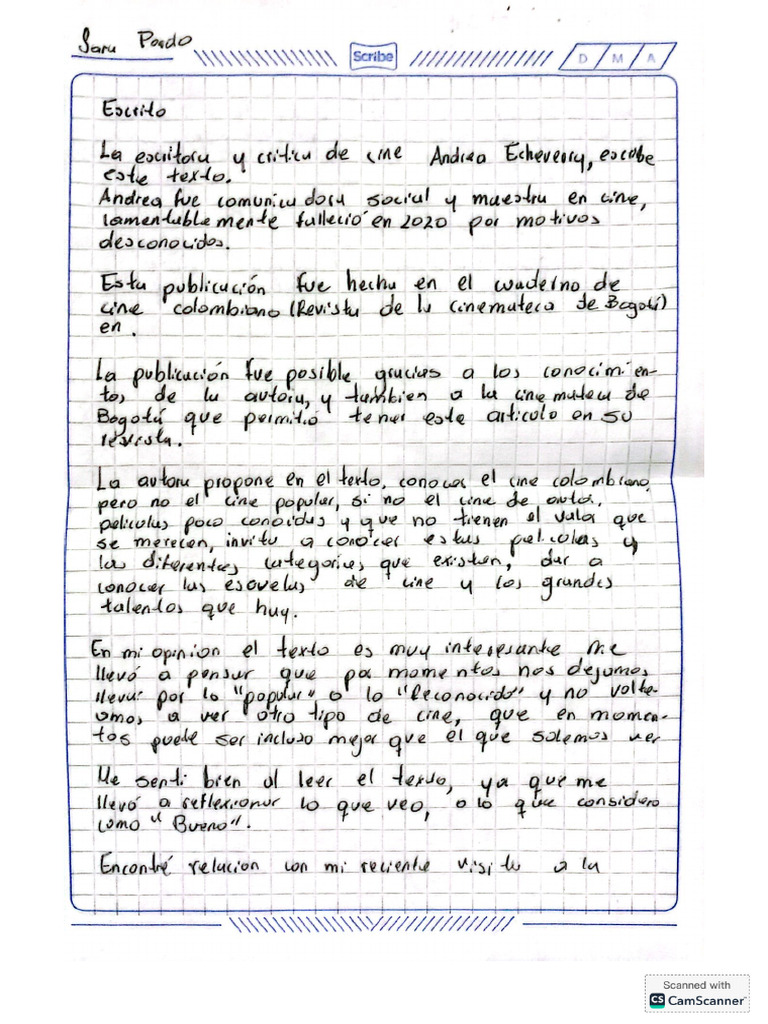 Sara Pardo
Scribe
D M A
Escrito
La escritora y critica de cine Andrea Echeverry, escribe
este texto.
Andrea fue comunicadora social y maestra en cine,
lamentablemente falleció en 2020 por motivos
desconocidos.
Esta publicación fue hecha en el cuaderno de
cine colombiano (Revista de la cinemateca de Bogotá)
en .
La publicación fue posible gracias a los conocimien-
tos de la autora, y tambien a la cinemateca de
Bogotá que permitió tener este articulo en su
revista.
La autora propone en el texto, conocer el cine colombiano,
pero no el cine popular, si no el cine de autor,
peliculas poco conocidas y que no tienen el valor que
se merecen, invita a conocer estas peliculas y
las diferentes categorias que existen, dar a
conocer las escuelas de cine y los grandes
talentos que hay.
En mi opinion el texto es muy interesante me
llevó a pensar que por momentos nos dejamos
llevar por lo "popular" o lo "Reconocido" y no volte-
amos a ver otro tipo de cine, que en momen-
tos puede ser incluso mejor que el que solemos ver
Me senti bien al leer el texto, ya que me
llevó a reflexionar lo que veo, o lo que considero
como "Bueno".
Encontré relacion con mi reciente visita a la
Scanned with
CS CamScanner